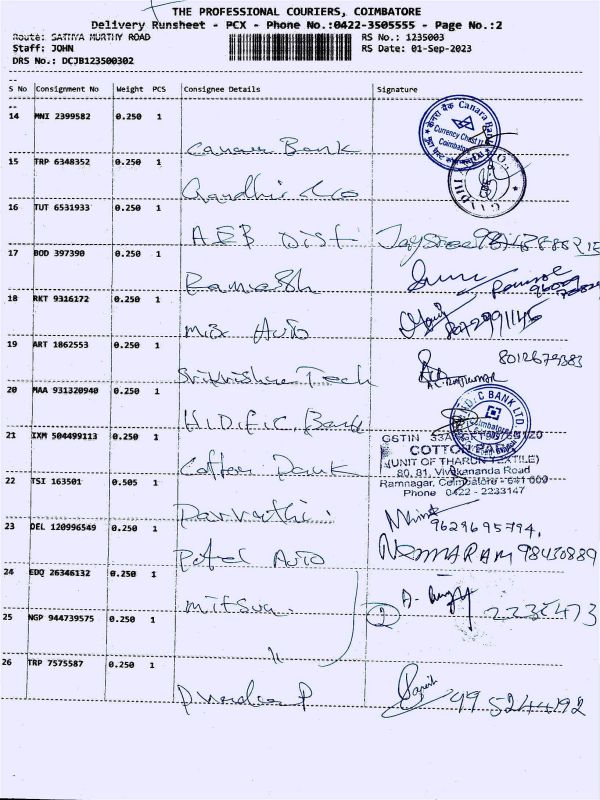 THE PROFESSIONAL COURIERS, COIMBATORE
Delivery Runsheet - PCX - Phone No.:0422-3505555 - Page No.:2
Route: SATHYA MURTHY ROAD
RS No.: 1235003
Staff: JOHN
RS Date: 01-Sep-2023
DRS No.: DCJB123500302
S No Consignment No Weight PCS Consignee Details Signature
14 MNI 2399582 0.250 1
Canara Bank
केनरा बैंक Canara Bank
Currency Chest
Coimbatore
15 TRP 6348352 0.250 1
Gandhi & Co
GANDHI
16 TUT 6531933 0.250 1
17 BOD 397390 0.250 1
Ramesh
18 RKT 9316172 0.250 1
Auto
19 ART 1862553 0.250 1
Tech
8012679383
20 MAA 931320940 0.250 1
H.D.F.C. Bank
BANK LTD.
Coimbatore
21 IXM 504499113 0.250 1
Cotton Park
GSTIN
COTTON PARK
(UNIT OF THARUN TEXTILE)
80, 81, Vivekananda Road
Ramnagar, Coimbatore - 641 009
Phone 0422 - 2233147
22 TSI 163501 0.505 1
Parvathi
9629695794,
23 DEL 120996549 0.250 1
Patel Auto
24 EDQ 26346132 0.250 1
mitsva
2
25 NGP 944739575 0.250 1
"
26 TRP 7575587 0.250 1
9952244192